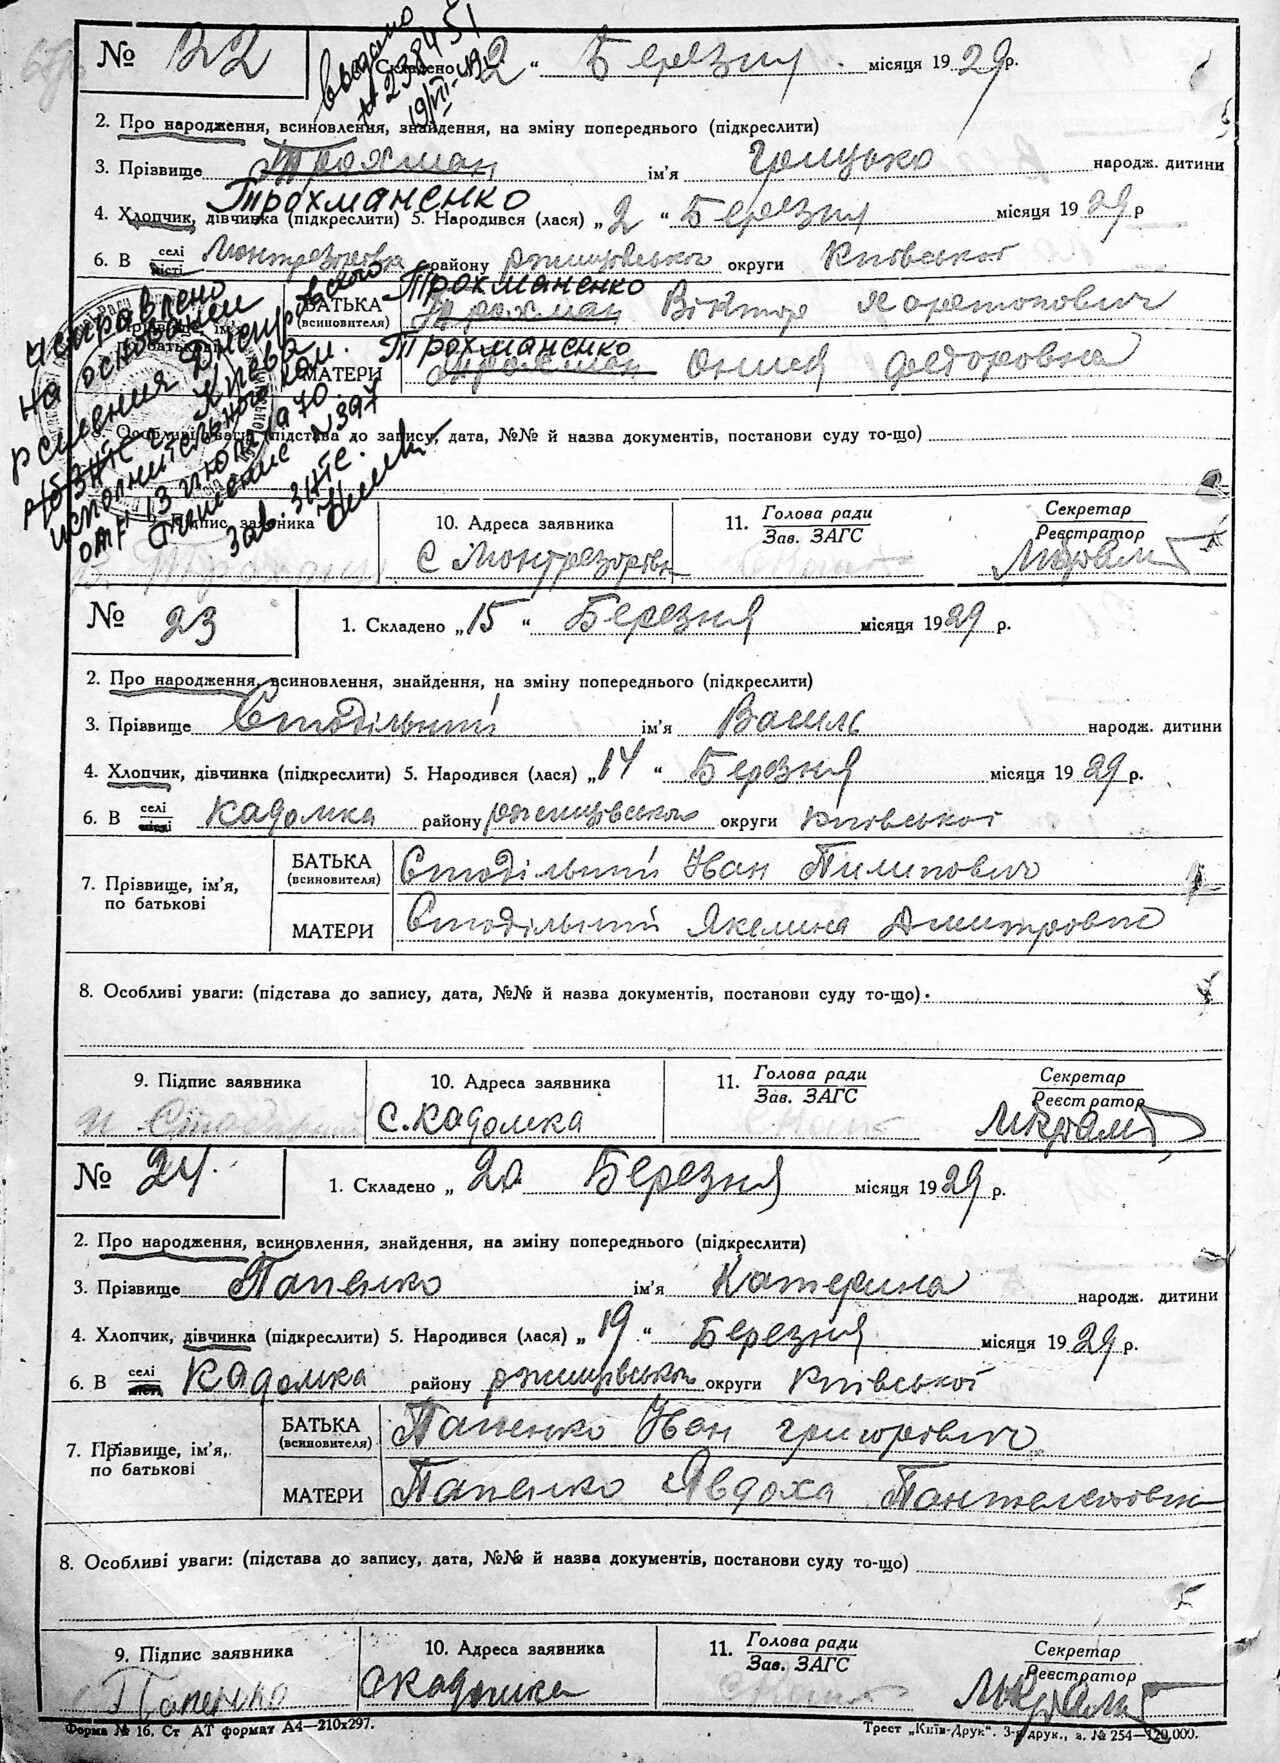 № 22
Складено „ 2 “ Березня місяця 1929 р.
2. Про народження, всиновлення, знайдення, на зміну попереднього (підкреслити)
3. Прізвище Трохман ім'я Грицько народж. дитини
Трохманенко
4. Хлопчик, дівчинка (підкреслити) 5. Народився (лася) „ 2 “ Березня місяця 1929 р
6. В селі/місті Монтрезоровка району ржищівського округи Київської
Трохманенко
БАТЬКА (всиновителя) Трохман Віктор Харитонович
Трохманенко
МАТЕРИ Трохман Онися Федоровна
Прізвище, ім'я, по батькові
исправлено
на основании
решения Днепровского
р/бЗАГС г. Киева
исполнительного ком.
от 13 июля 1970.
№ 397
Зав. ЗАГС.
Особливі уваги: (підстава до запису, дата, №№ й назва документів, постанови суду то-що)
9. Підпис заявника 10. Адреса заявника 11. Голова ради/Зав. ЗАГС Секретар/Реєстратор
С Монтрезоровка
№ 23
1. Складено „ 15 “ Березня місяця 1929 р.
2. Про народження, всиновлення, знайдення, на зміну попереднього (підкреслити)
3. Прізвище Стодільний ім'я Василь народж. дитини
4. Хлопчик, дівчинка (підкреслити) 5. Народився (лася) „ 14 “ Березня місяця 1929 р.
6. В селі/місті Кадомка району ржищівського округи Київської
7. Прізвище, ім'я, по батькові
БАТЬКА (всиновителя) Стодільний Іван Пилипович
МАТЕРИ Стодільний Якелина Дмитровна
8. Особливі уваги: (підстава до запису, дата, №№ й назва документів, постанови суду то-що).
9. Підпис заявника 10. Адреса заявника 11. Голова ради/Зав. ЗАГС Секретар/Реєстратор
С. Кадомка
№ 24.
1. Складено „ 20 Березня місяця 1929 р.
2. Про народження, всиновлення, знайдення, на зміну попереднього (підкреслити)
3. Прізвище Папенко ім'я Катерина народж. дитини
4. Хлопчик, дівчинка (підкреслити) 5. Народився (лася) „ 19 “ Березня місяця 1929 р.
6. В селі/місті Кадомка району ржищівського округи Київської
7. Прізвище, ім'я, по батькові
БАТЬКА (всиновителя) Папенко Іван Григорович
МАТЕРИ Папенко Явдоха Пантелетовна
8. Особливі уваги: (підстава до запису, дата, №№ й назва документів, постанови суду то-що)
9. Підпис заявника 10. Адреса заявника 11. Голова ради/Зав. ЗАГС Секретар/Реєстратор
Папенко С Кадомка
Форма № 16. Ст АТ формат А4—210x297. Трест „Київ-Друк“. 3-я друк., з. № 254—120,000.